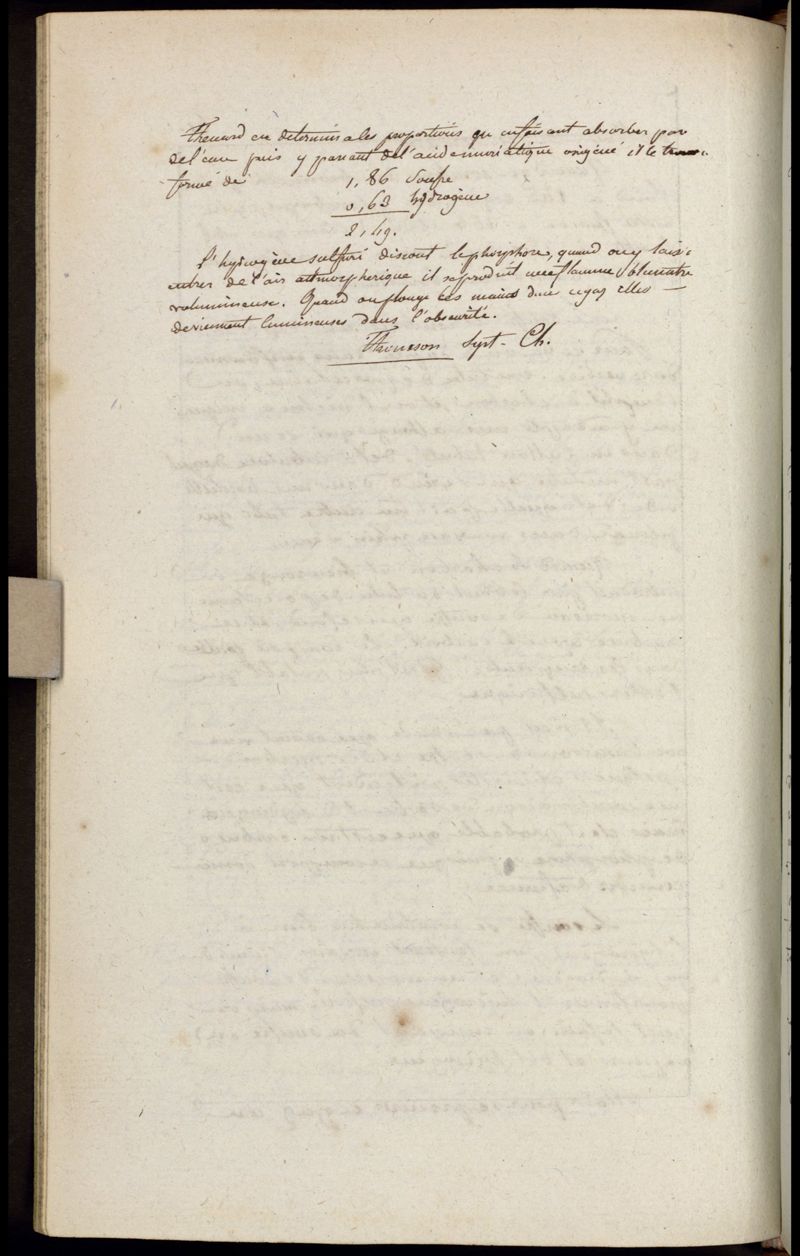 Thenard en determina les proportions en en faisant absorber par
de l'eau puis y passant de l'acide muriatique oxigéné il le trouva
formé de 1,86 Soufre
0,63 hydrogène
2,49.
l'hydrogène sulfuré dissout le phosphore, quand on y laisse
entrer de l'air atmospherique il se produit une flamme bleuatre
volumineuse. Quand on plonge les mains dans ce gaz elles
deviennent lumineuses dans l'obscurité.
Thomson Syst. Ch.